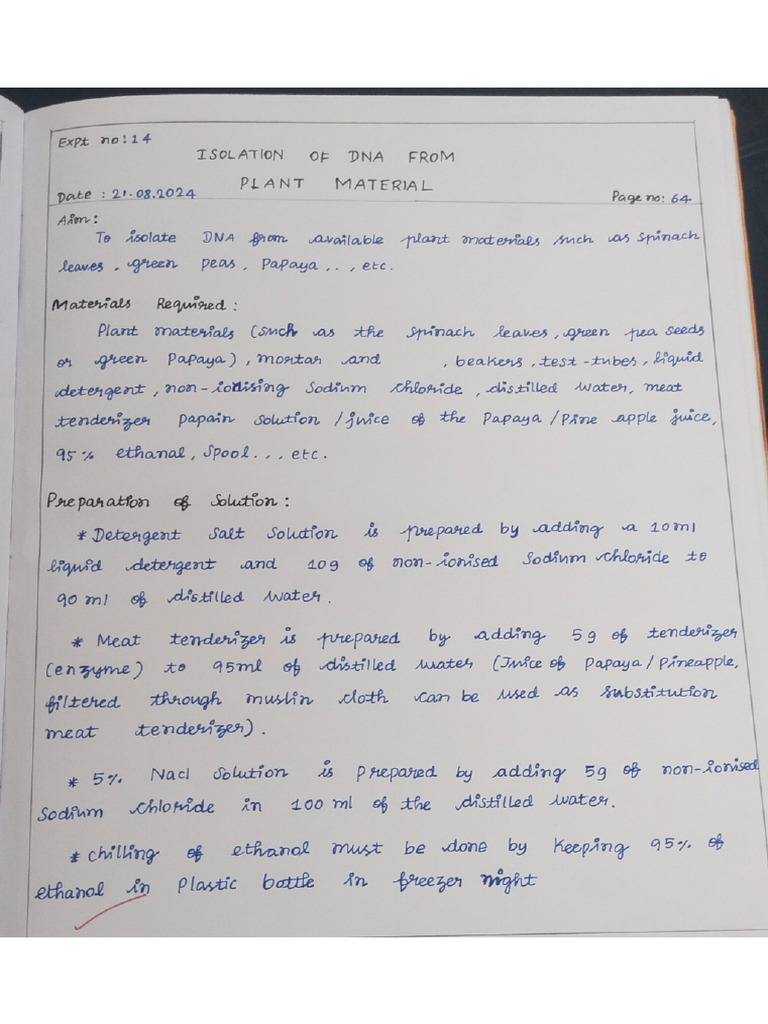 Expt no: 14
ISOLATION OF DNA FROM
PLANT MATERIAL
Date : 21.08.2024
Page no: 64
Aim:
To isolate DNA from available plant materials such as spinach
leaves, green peas, Papaya . . , etc.
Materials Required:
Plant materials (such as the spinach leaves, green pea seeds
or green Papaya), mortar and , beakers, test-tubes, liquid
detergent, non-ionising Sodium chloride, distilled water, meat
tenderizer papain solution / juice of the Papaya / Pine apple juice,
95% ethanal, Spool . . , etc.
Preparation of Solution:
* Detergent salt solution is prepared by adding a 10ml
liquid detergent and 10g of non-ionised Sodium chloride to
90 ml of distilled water.
* Meat tenderizer is prepared by adding 5g of tenderizer
(enzyme) to 95ml of distilled water (Juice of Papaya / Pineapple,
filtered through muslin cloth can be used as substitution
meat tenderizer).
* 5% Nacl Solution is Prepared by adding 5g of non-ionised
Sodium chloride in 100 ml of the distilled water.
* chilling of ethanol must be done by keeping 95% of
ethanol in Plastic bottle in freezer night